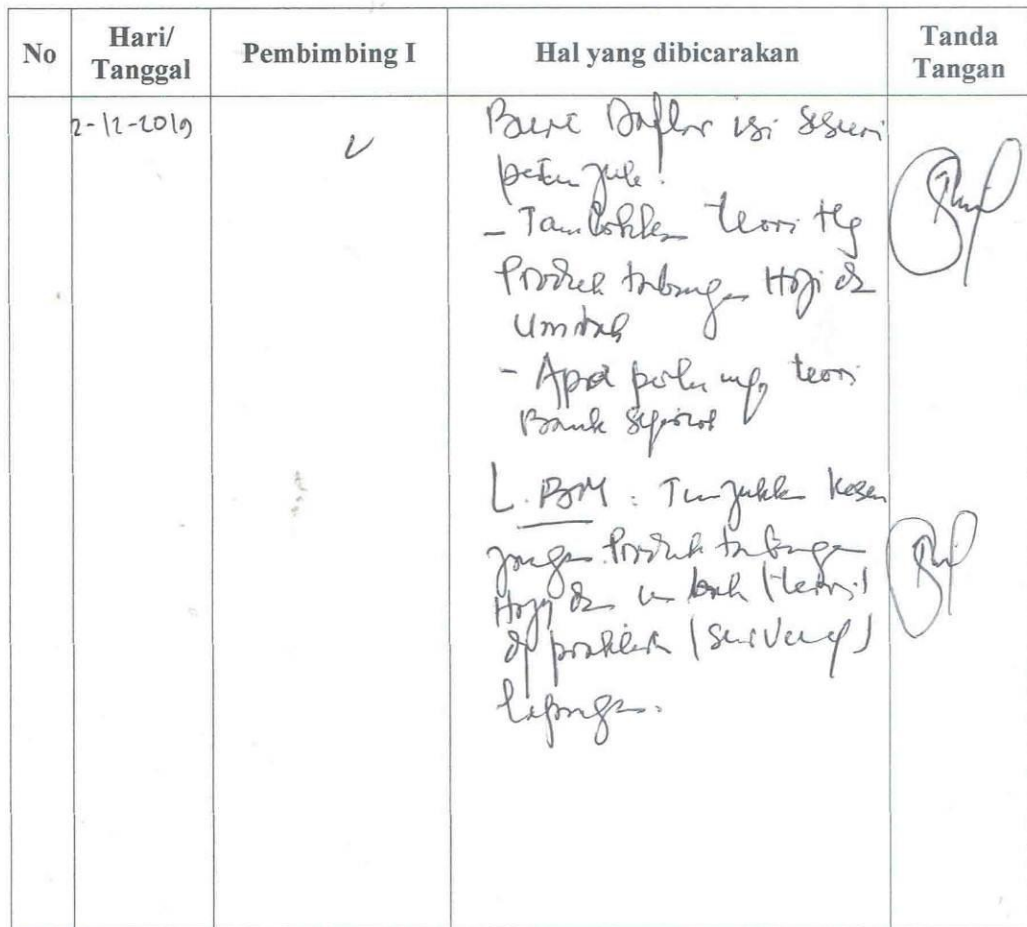 No
Hari/
Tanggal
Pembimbing I
Hal yang dibicarakan
Tanda
Tangan
2-12-2019
Daftar isi sesuai
petunjuk!
- Tambahkan teori ttg
Produk tabungan Haji dan
Umrah
- Apa perlu teori
Bank
L. BM : Tunjukkan kesen
jangan Produk tabungan
Haji dan umrah (teori)
dg praktek (survey)
lapangan.